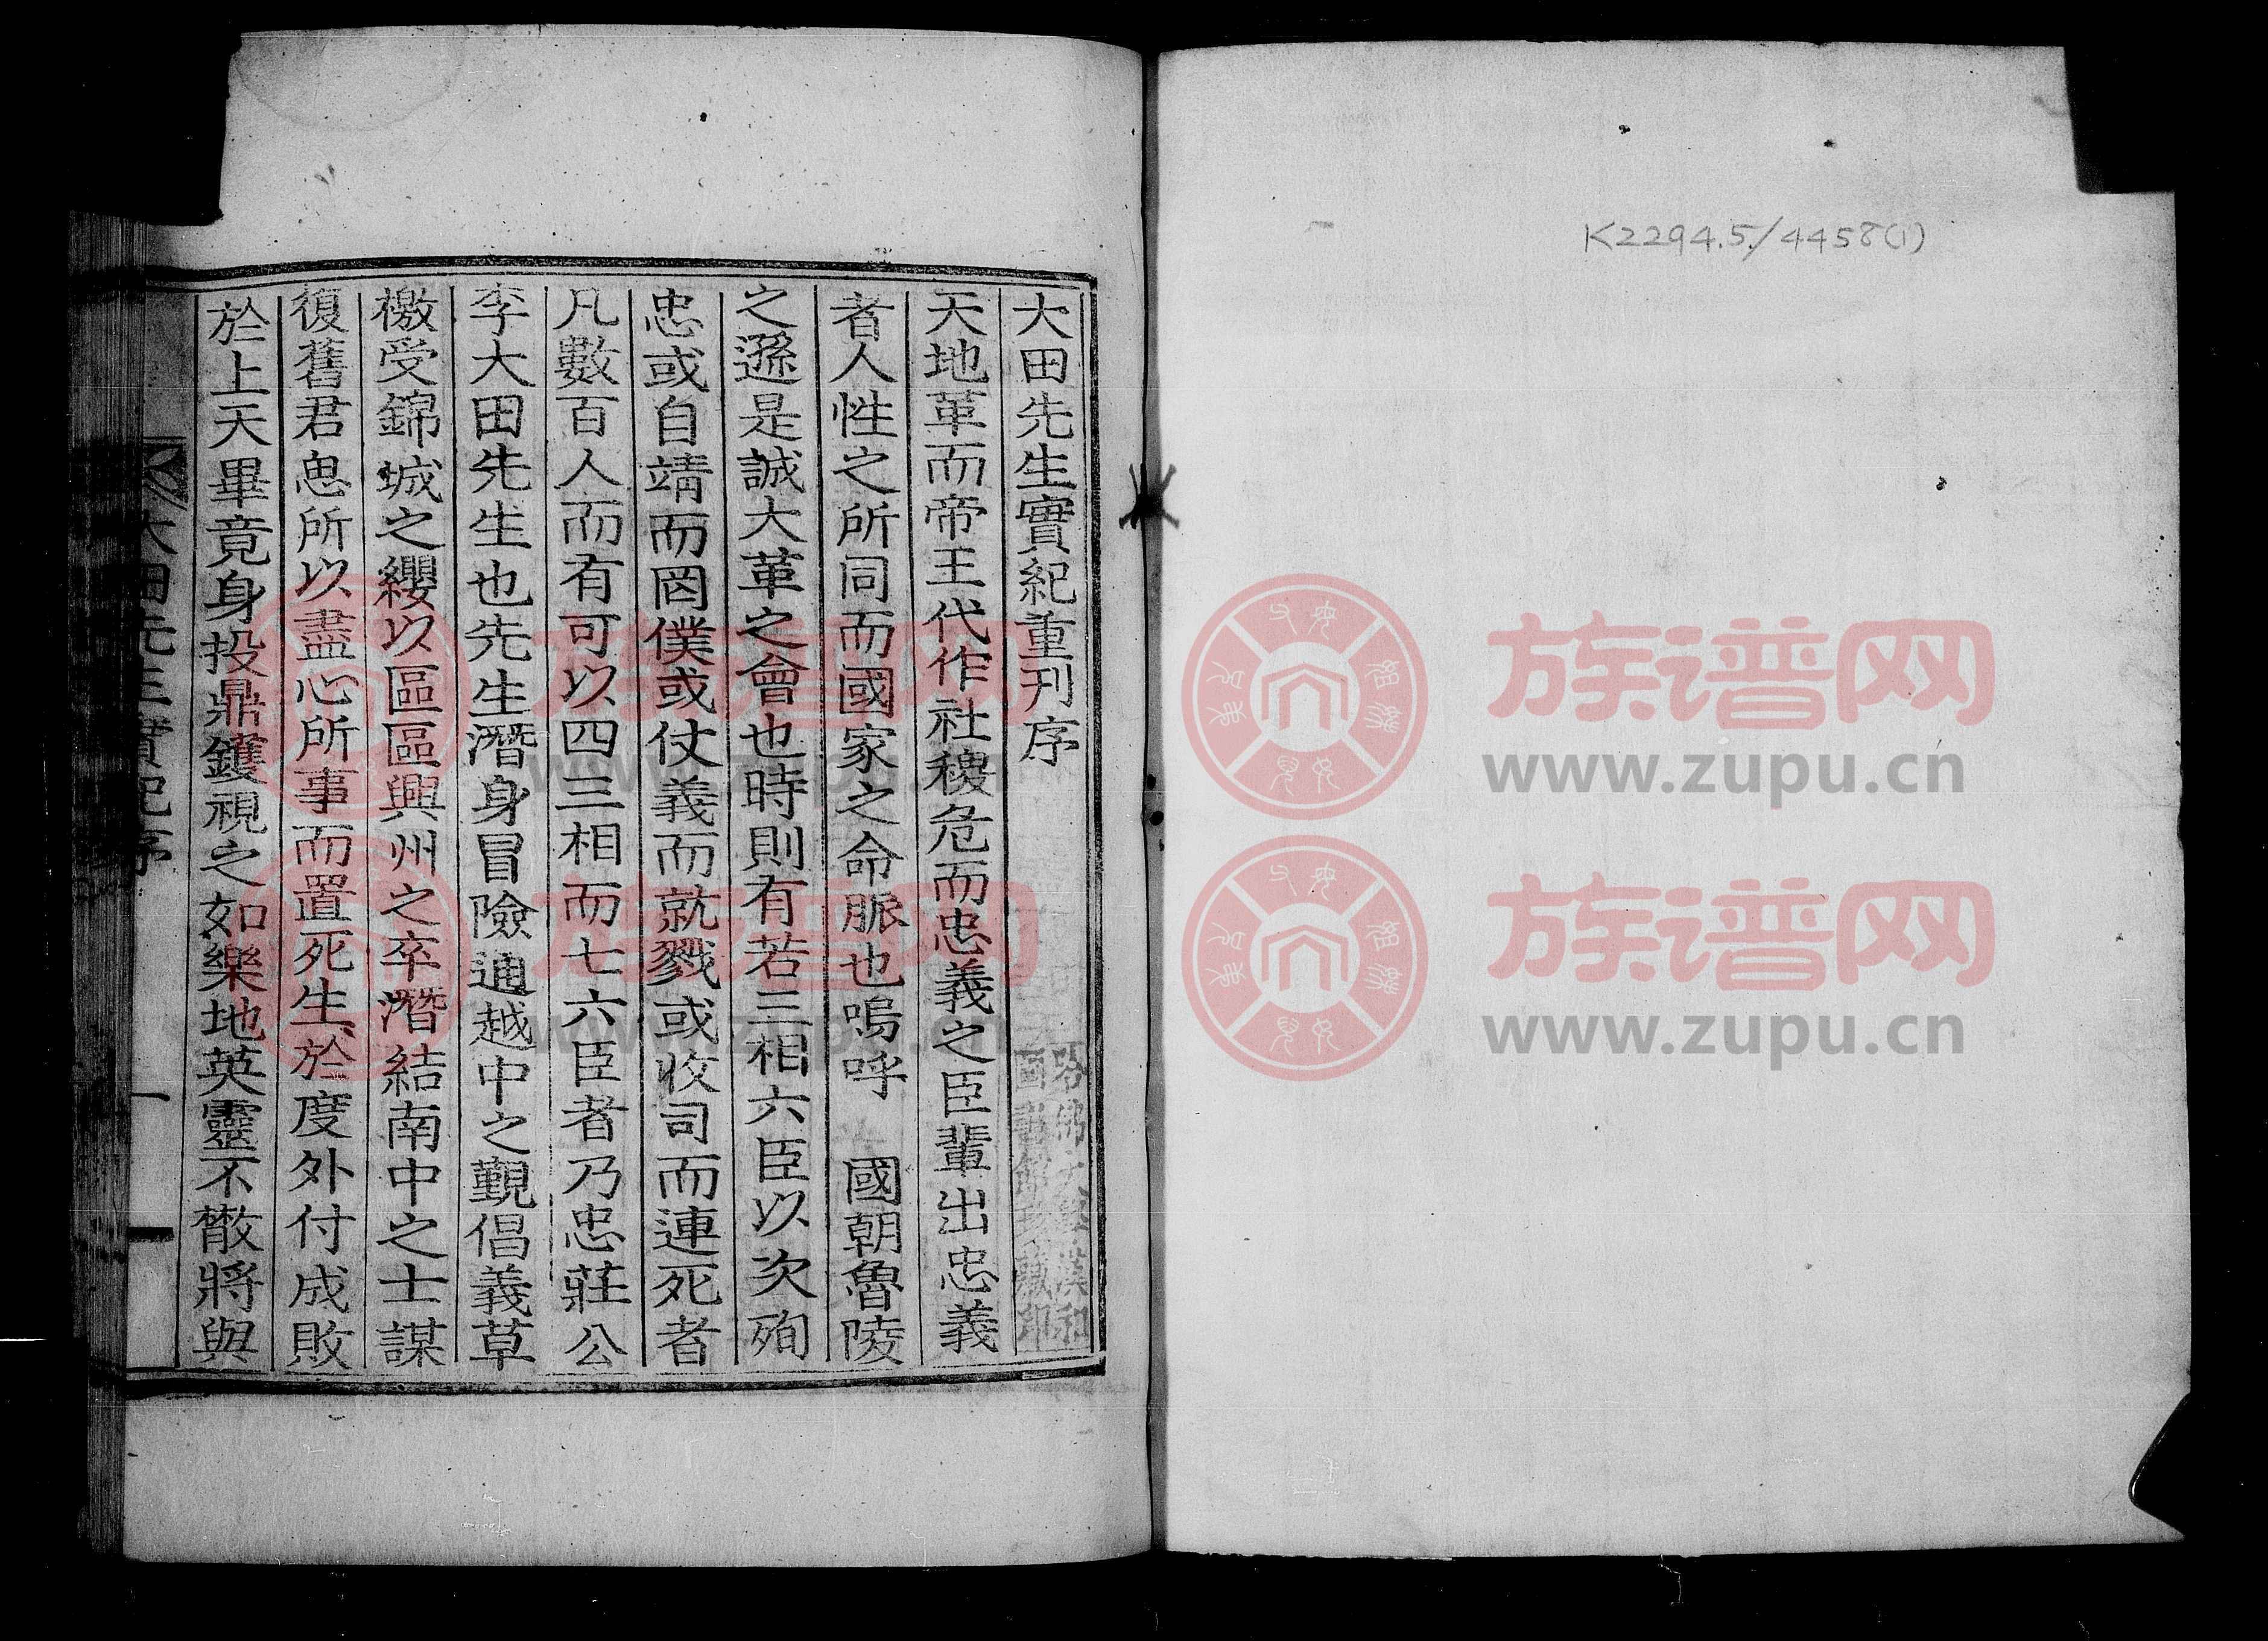 K2294.5/4458(1)
大田先生實紀重刊序
天地革而帝王代作社稷危而忠義之臣輩出忠義
者人性之所同而國家之命脈也嗚呼 國朝魯陵
之遜是誠大革之會也時則有若三相六臣以次殉
忠或自靖而罔僕或仗義而就戮或收司而連死者
凡數百人而有可以四三相而七六臣者乃忠莊公
李大田先生也先生潛身冒險逈越中之覲倡義草
檄受錦城之纓以區區興州之卒潛結南中之士謀
復舊君思所以盡心所事而置死生於度外付成敗
於上天畢竟身投鼎鑊視之如樂地英靈不散將與
大田先生實紀序
一
族谱网
www.zupu.cn
族谱网
www.zupu.cn
族谱网
www.zupu.cn
族谱网
www.zupu.cn